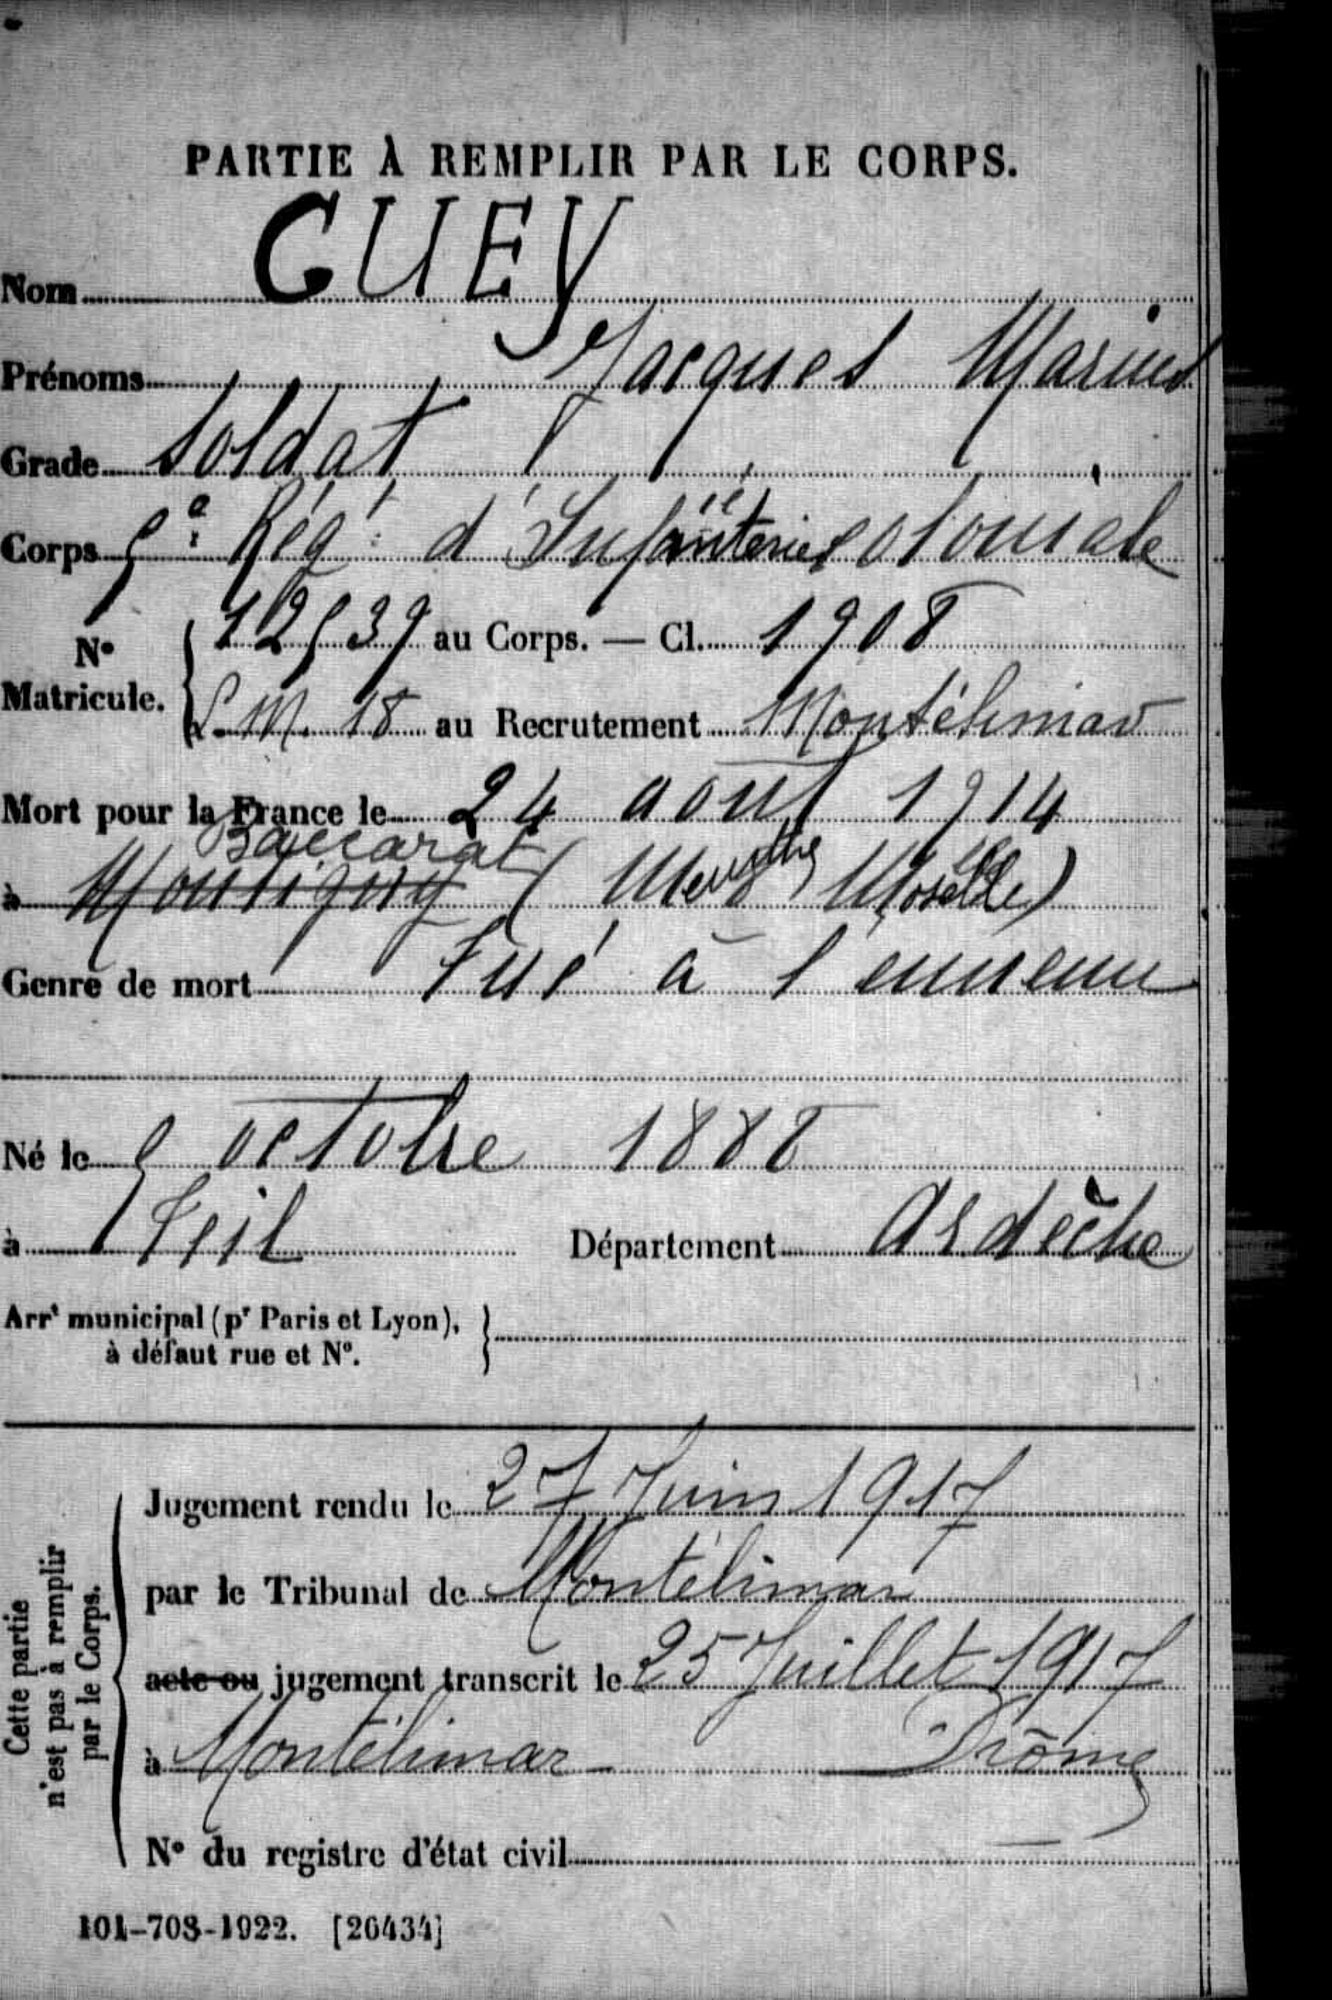 PARTIE À REMPLIR PAR LE CORPS.
Nom GUEY
Prénoms Jacques Marius
Grade Soldat
Corps 5e Régt d'Infanterie Coloniale
No Matricule. 12539 au Corps. — Cl. 1908
L.M. 18 au Recrutement Montélimar
Mort pour la France le 24 août 1914
Baccarat
à Montigny (Meurthe Moselle)
Genre de mort Tué à l'ennemi
Né le 5 octobre 1888
à Teil Département Ardèche
Arrt municipal (pr Paris et Lyon),
à défaut rue et No.
Cette partie
n'est pas à remplir
par le Corps.
Jugement rendu le 27 Juin 1917
par le Tribunal de Montélimar
acte ou jugement transcrit le 25 Juillet 1917
à Montélimar — Drôme
No du registre d'état civil
101-708-1922. [26434]